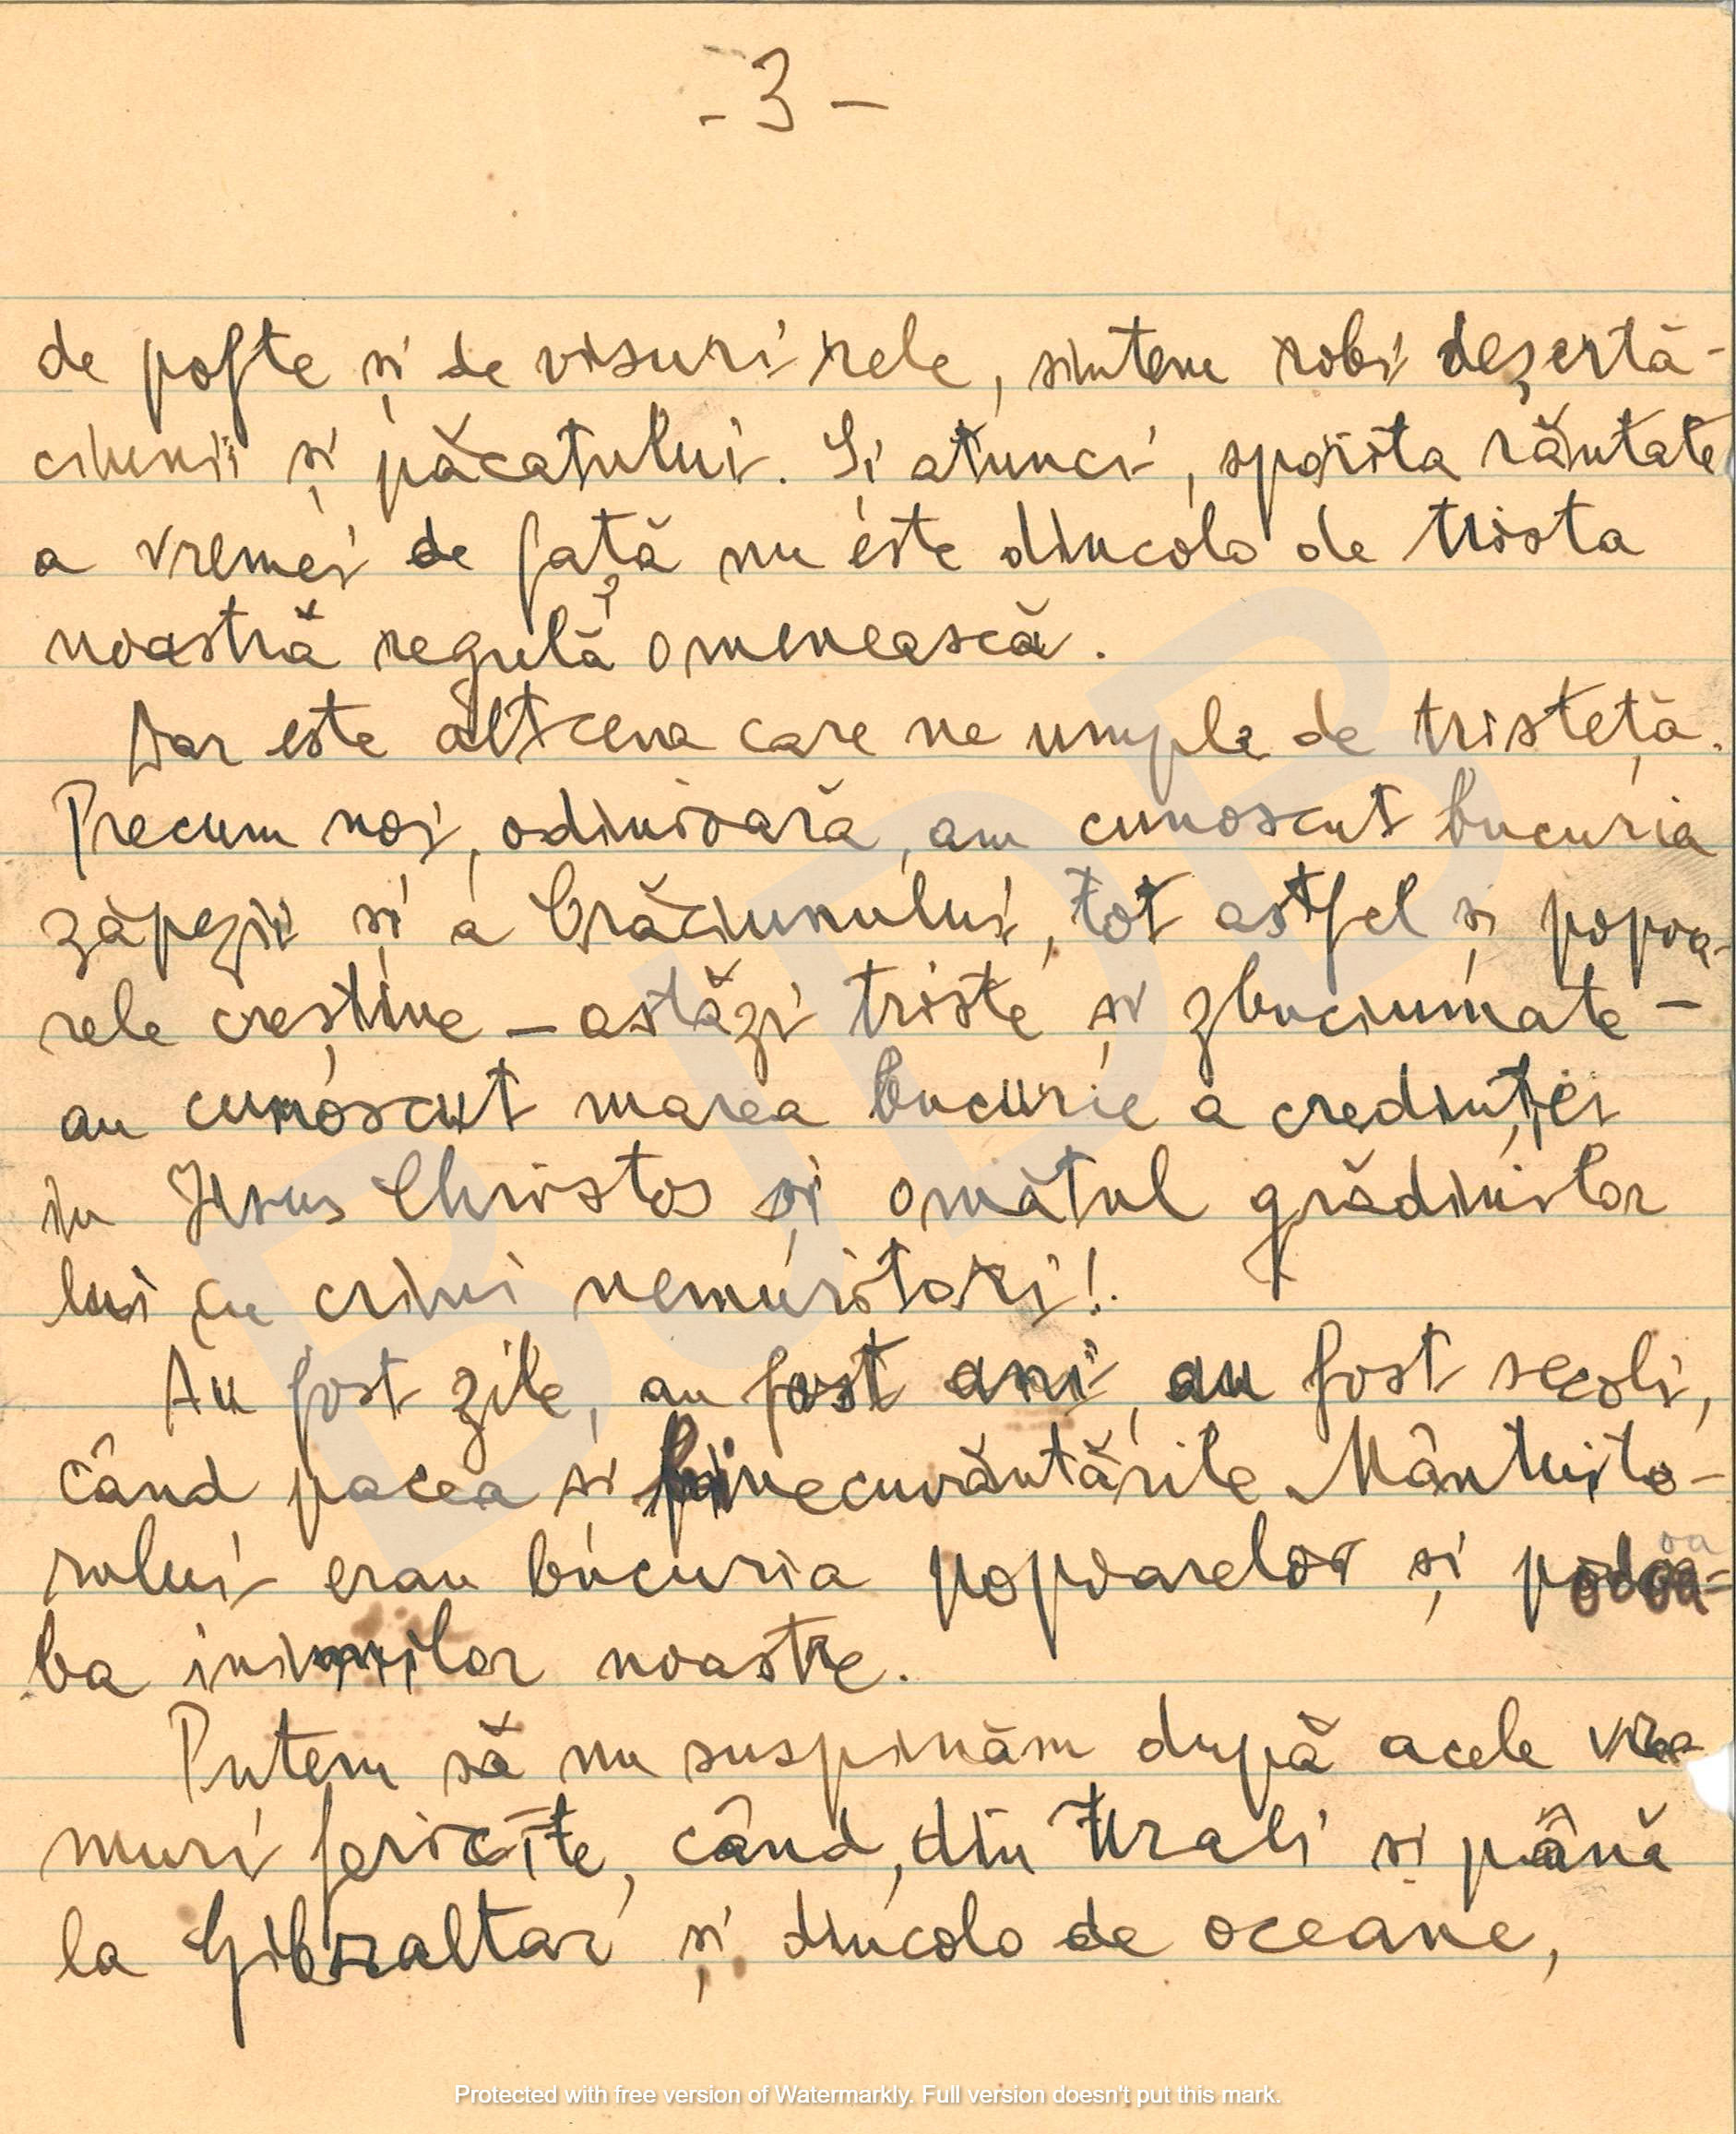 - 3 -
de pofte și de visuri rele, suntem robi deșertă-
ciunii și păcatului. Și atunci, sporita răutate
a vremei de față nu este dincolo de trista
noastră regulă omenească.
Dar este altceva care ne umple de tristeță.
Precum noi, odinioară, am cunoscut bucuria
zăpezii și a Crăciunului, tot astfel și popoa-
rele creștine – astăzi triste și zbuciumate –
au cunoscut marea bucurie a credinței
in Jesus Christos și omătul grădinilor
lui cu crini nemuritori!
Au fost zile, au fost ani, au fost secoli,
când pacea și binecuvântările Mântuito-
rului erau bucuria popoarelor și podoa-
ba inimilor noastre.
Putem să nu suspinăm după acele vre
muri fericite, când, din Urali și până
la Gibraltar și dincolo de oceane,
BJDB
Protected with free version of Watermarkly. Full version doesn't put this mark.